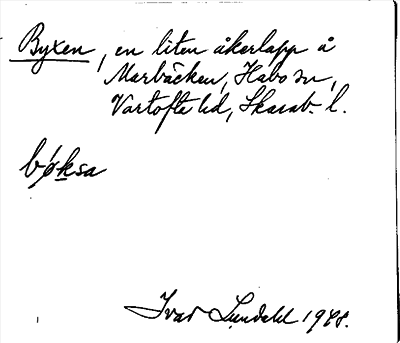 Byxen, en liten åkerlapp å
Marbäcken, Habo sn,
Vartofte hd, Skarab. l.
bøksa
Ivar Lundahl 1928.